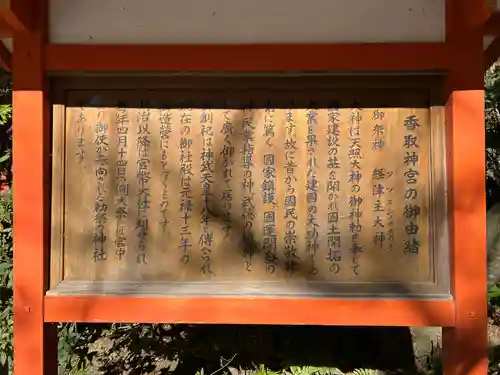 香取神宮の御由緒
フツヌシノオホカミ
御祭神 経津主大神
大神は天照大神の御神勅を奉じて
国家建設の基を開かれ国土開拓の
大業を果された建国の大功神で
ます。故に昔から国民の崇敬
に篤く、国家鎮護、国運開発の
神、民業指導の神、武徳の祖神と
して広く仰がれて居ります。
御創祀は神武天皇十八年と傳られ
現在の御社殿は元禄十三年の
御造営にかゝるものです。
明治以降は官幣大社に列せられ
毎年四月十四日の例大祭には宮中
より御使が参向される勅祭の神社
であります。